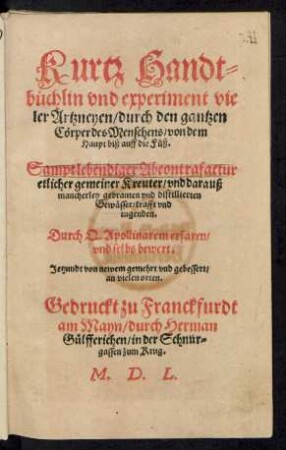 Kurtz Handt-
büchlin vnd experiment vie
ler Artzneyen/durch den gantzen
Cörper des Menschens/von dem
Haupt biß auff die Füß.
Sampt lebendiger Abcontrafactur
etlicher gemeiner Kreuter/vnd darauß
mancherley gebranten vnd distillierten
Gewässer/krafft vnd
tugenden.
Durch Q. Apollinarem erfaren/
vnd selbs bewert.
Jetzundt von newem gemehrt vnd gebessert/
an vielen orten.
Gedruckt zu Franckfurdt
am Mayn/durch Herman
Gülfferichen/in der Schnur-
gassen zum Krug.
M. D. L.